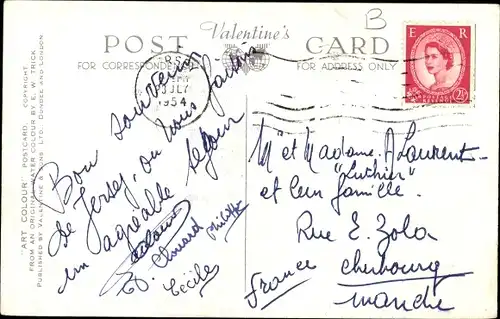 B
Valentine's
POST CARD
FOR CORRESPONDENCE
FOR ADDRESS ONLY
E R
POSTAGE REVENUE
2½D
JULY
1954
"ART COLOUR" POSTCARD. COPYRIGHT.
FROM AN ORIGINAL WATER COLOUR BY E. W. TRICK.
PUBLISHED BY VALENTINE & SONS LTD. DUNDEE AND LONDON
Bon souvenir
de Jersey, où nous faisons
un agréable séjour
Edouard Philippe
Cécile
M et Madame A Laurent
"Luthier"
et leur famille.
Rue E. Zola
Cherbourg
Manche
France